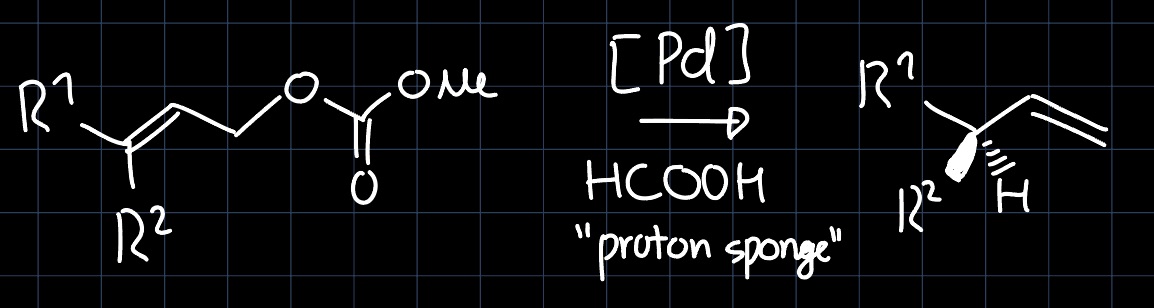 R¹
R²
O
OMe
O
[Pd]
HCOOH
"proton sponge"
R¹
R²
H